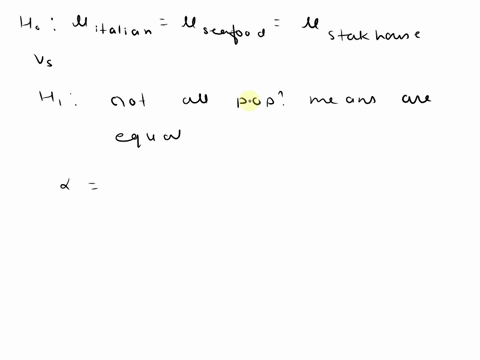 H₀: μ italian = μ seafood = μ stakhouse
Vs
H₁: not all pop? means are
equal
α =